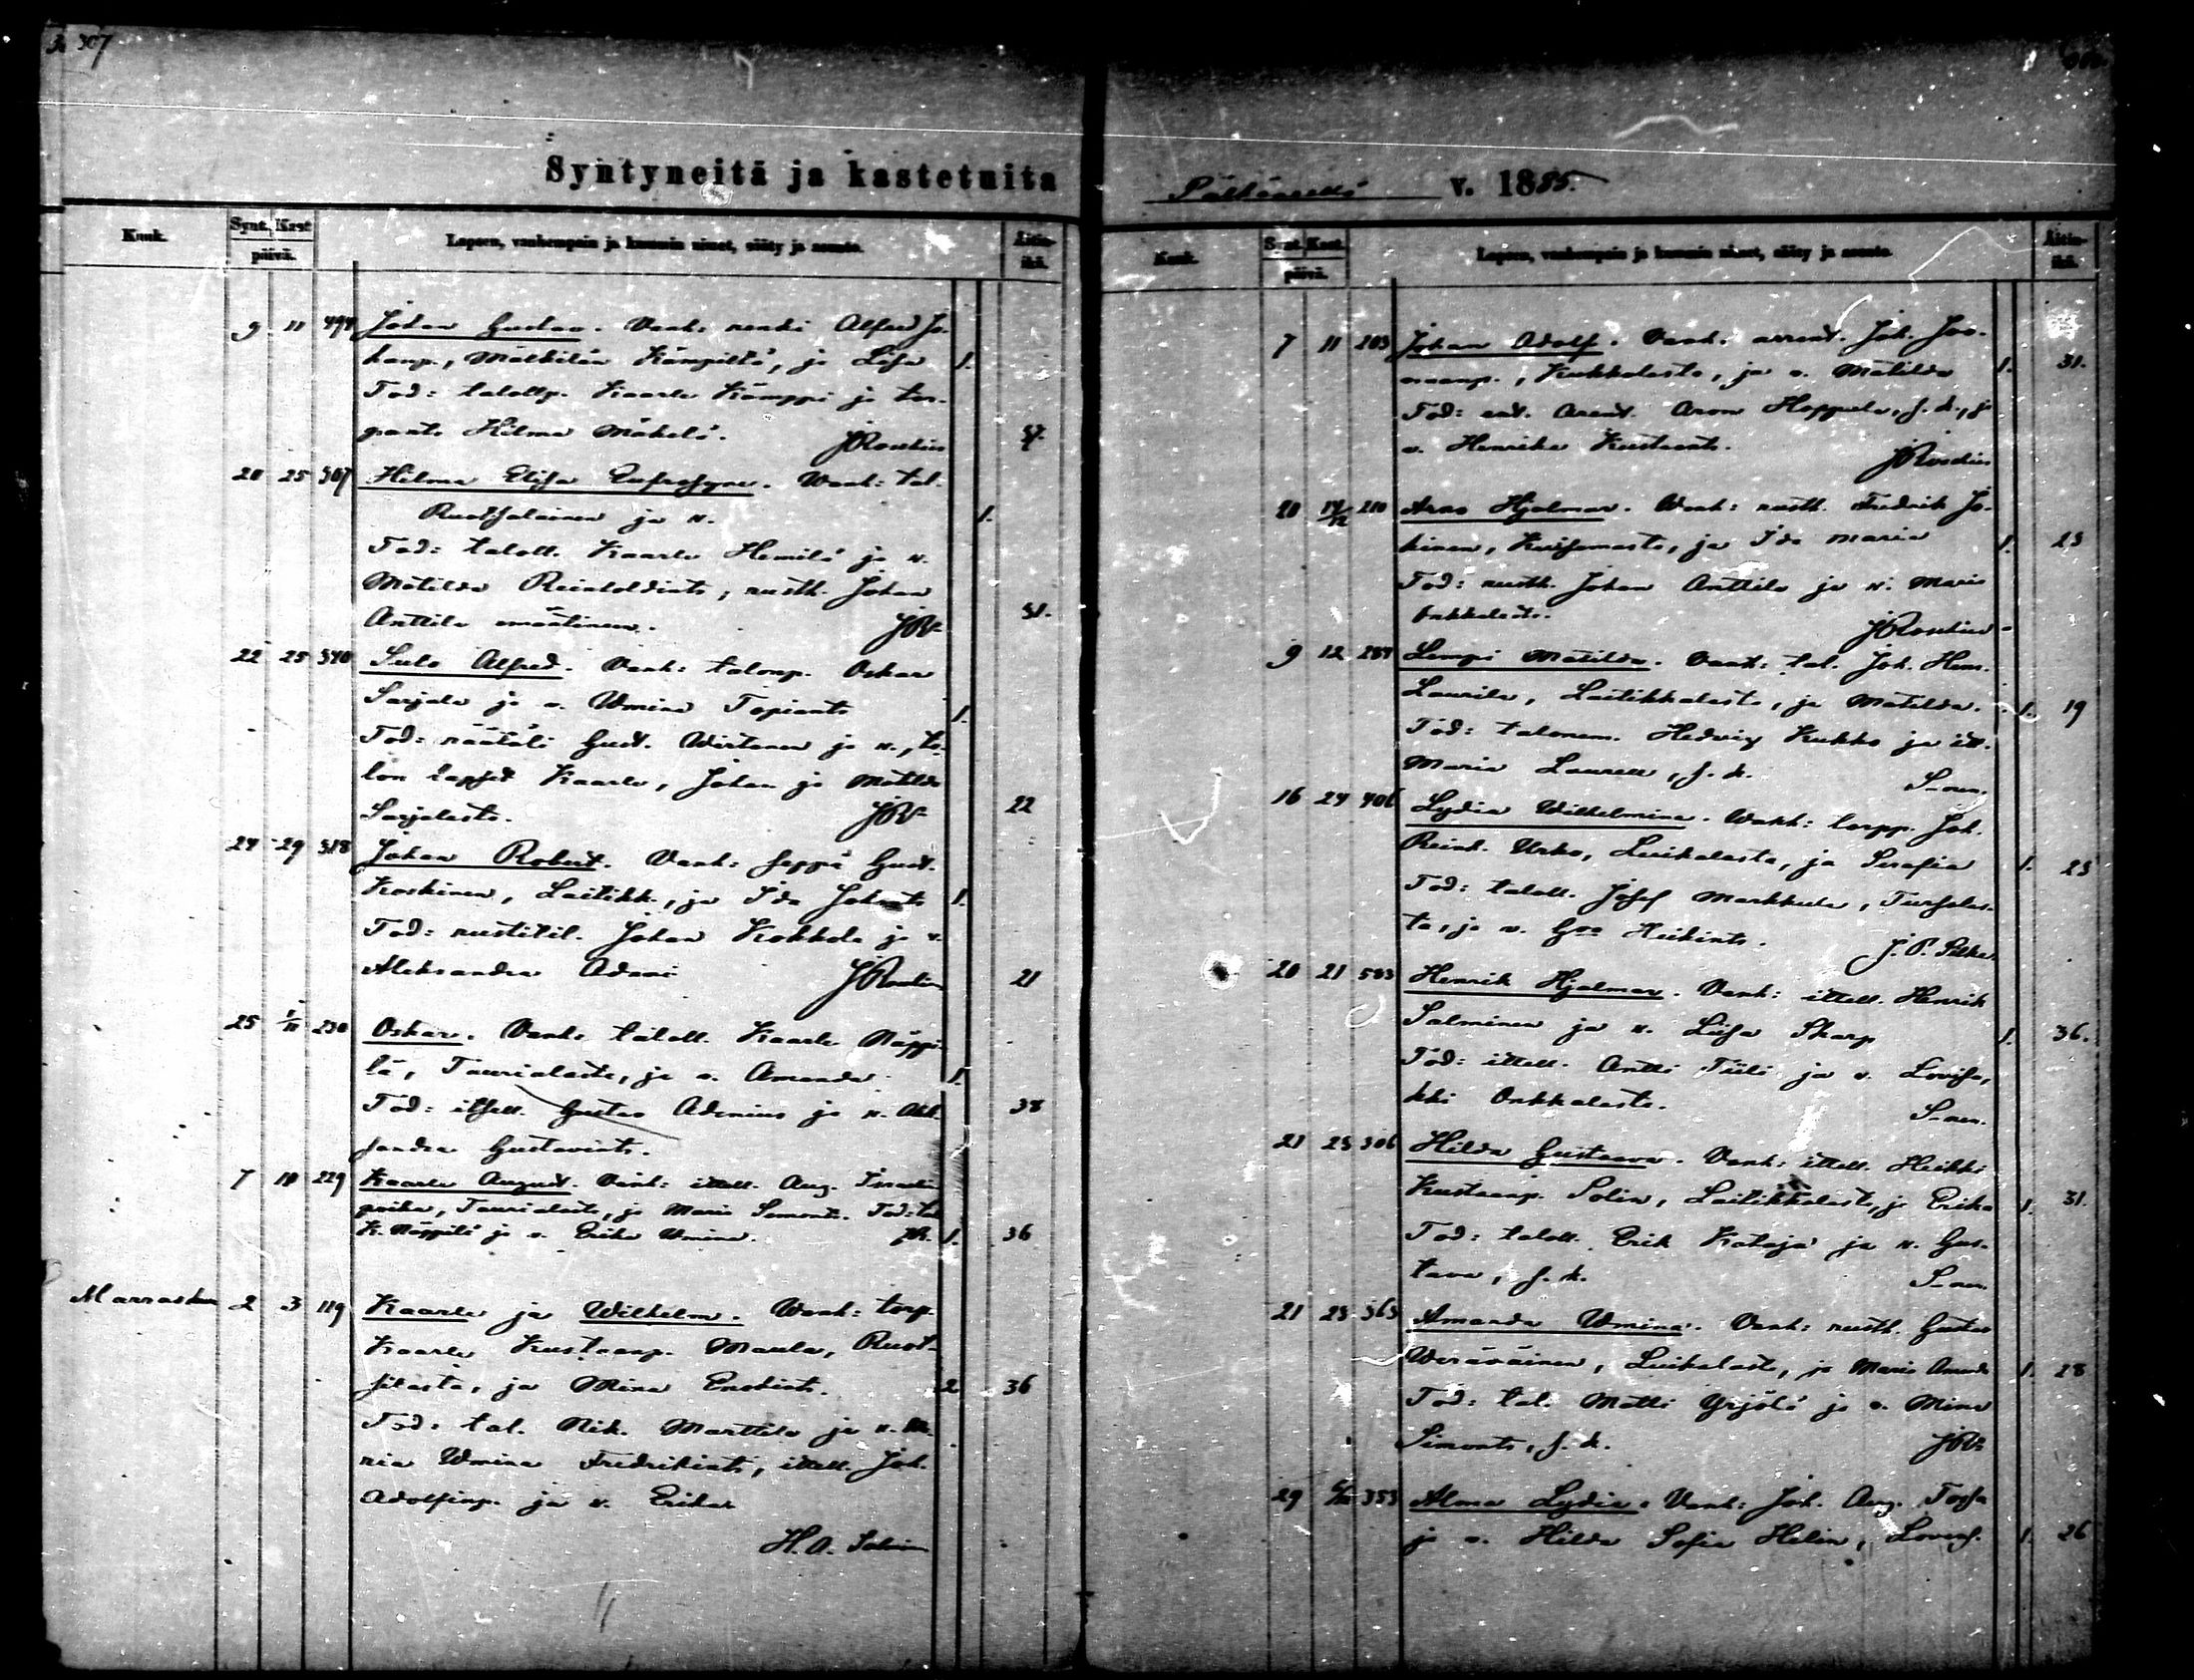 307
Syntyneitä ja kastetuita
Kuuk. Synt. Kast. päivä. Lapsen, vanhempain ja kummin nimet, sääty ja asunto. Äitin ikä.
9 11 494 Johan Gustav. Vanh: renki Alfred Jo-
hanp., Mälkilän Kämpiltä, ja Liisa 1.
Tod: talollp. Kaarle Kämppi ja tor-
pant. Hilma Mäkelä. JRoslin 37
20 25 367 Hilma Elisa Eufrosyne. Vanh: tal.
Ruotsalainen ja v. 1.
Tod: taloll. Kaarle Hemilä ja v.
Matilda Reinholdint., rusth. Johan
Anttila emäntineen. JR 31.
22 25 340 Sulo Alfred. Vanh: talonp. Oskar
Sarjala ja v. Wmina Topiant. 1.
Tod: räätäli Gust. Wirtanen ja v., ta-
lon lapset Kaarle, Johan ja Matilda
Sarjalasta. JR 22
24 29 318 Johan Robert. Vanh: seppä Gust.
Koskinen, Laitikk., ja Ida Johant. 1.
Tod: rustitil. Johan Kokkola ja v.
Aleksandra Adami 21
25 1/11 230 Oskar. Vanh: taloll. Kaarle Näppi-
lä, Taurialasta, ja v. Amanda 1.
Tod: itsell. Gustav Adenius ja v. Alek-
sandra Gustavint. 38
7 10 229 Kaarle August. Vanh: itsell. Aug.
poika, Taurialasta, ja Maria Simont. Tod: tal.
K. Näppilä ja v. Erika Wmina. JR. 1. 36
Marraskuu 2 3 119 Kaarle ja Wilhelm. Vanh: torp.
Kaarle Kustaanp. Maula, Ruot-
silasta, ja Mina Enokint. 2 36
Tod: tal. Nik. Marttila ja v. Ma-
ria Wmina Fredrikint., itsell. Joh.
Adolfinp. ja v. Erika
H. A. Salmin
Pälkäneellä v. 1885.
Kuuk. Synt. Kast. päivä. Lapsen, vanhempain ja kummin nimet, sääty ja asunto. Äitin ikä.
7 11 203 Johan Adolf. Vanh: arrent. Joh. Joo-
naanp., Kukkolasta, ja v. Matilda 1. 31.
Tod: ent. Arent. Aron Heppula, s. k., ja
v. Henrika Kustaant.
20 14/12 210 Arvo Hjalmar. Vanh: rusth. Fredrik Jo-
kinen, Kuisemasta, ja Ida Maria 1. 23
Tod: rusth. Johan Anttila ja v. Maria
Onkkalasta.
9 12 284 Lempi Matilda. Vanh: tal. Joh. Herm.
Laurila, Laitikkalasta, ja Matilda. 1. 19
Tod: talonem. Hedvig Kukko ja itll.
Maria Laurell, s. k.
16 24 406 Lydia Wilhelmina. Vanh: torpp. Joh.
Reinh. Urko, Luikalasta, ja Serafia 1. 23
Tod: taloll. Josef Markkula, Tursolas-
ta, ja v. Eva Heikint.
20 21 533 Henrik Hjalmar. Vanh: ittell. Henrik
Salminen ja v. Liisa Skarp 1. 36.
Tod: ittell. Antti Tiili ja v. Lovisa,
kki Onkkalasta.
21 23 306 Hilda Gustaava. Vanh: ittell. Heikki
Kustaanp. Solin, Laitikkalasta, ja Erika 1. 31.
Tod: taloll. Erik Kataja ja v. Gus-
tava, s. k.
21 23 363 Amanda Wmina. Vanh: rusth. Gustav
Wäräväinen, Luikalasta, ja Maria Amanda 1. 28
Tod: tal. Matti Yrjölä ja v. Mina
Simont., s. k. JR
29 353 Alma Lydia. Vanh: Joh. Aug.
ja v. Hilda Sofia Helin, 1. 26